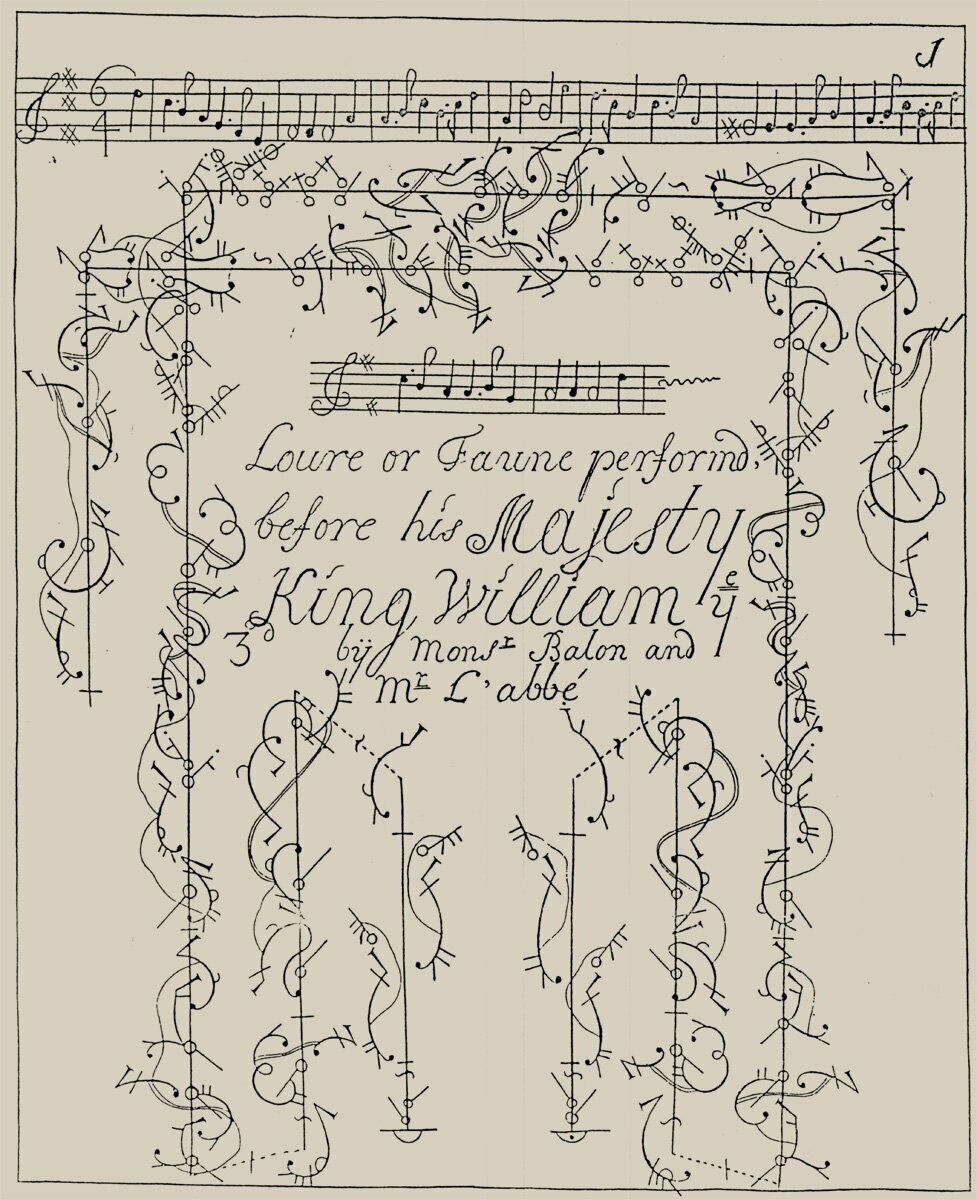 1
6
4
Loure or Faune perform'd,
before his Majesty
King William yͤ
3ᵈ by Monsʳ Balon and
Mʳ L'abbé